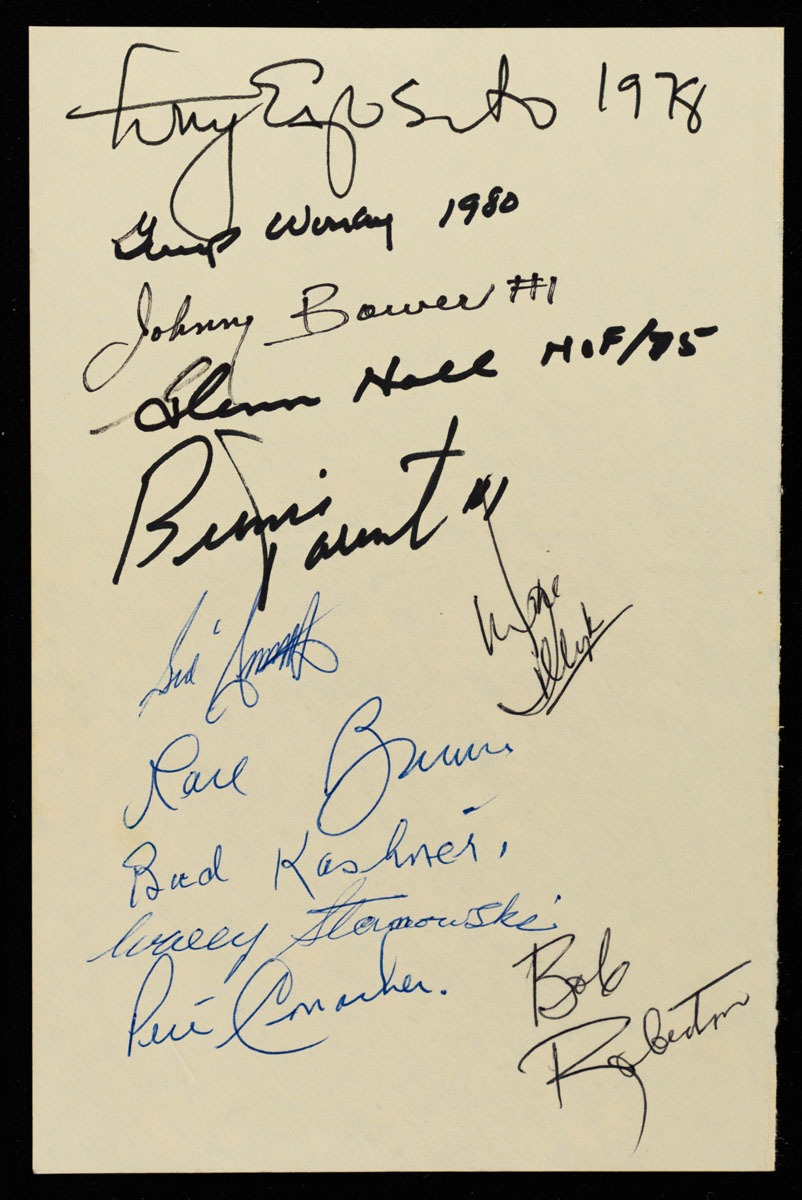 Tony Esposito 1978
Gump Worsley 1980
Johnny Bower #1
Glenn Hall HOF/75
Bernie
Parent #1
Sid Smith
Bud Kashner,
Wally Stanowski
Pete Conacher.
Bob
Robertson